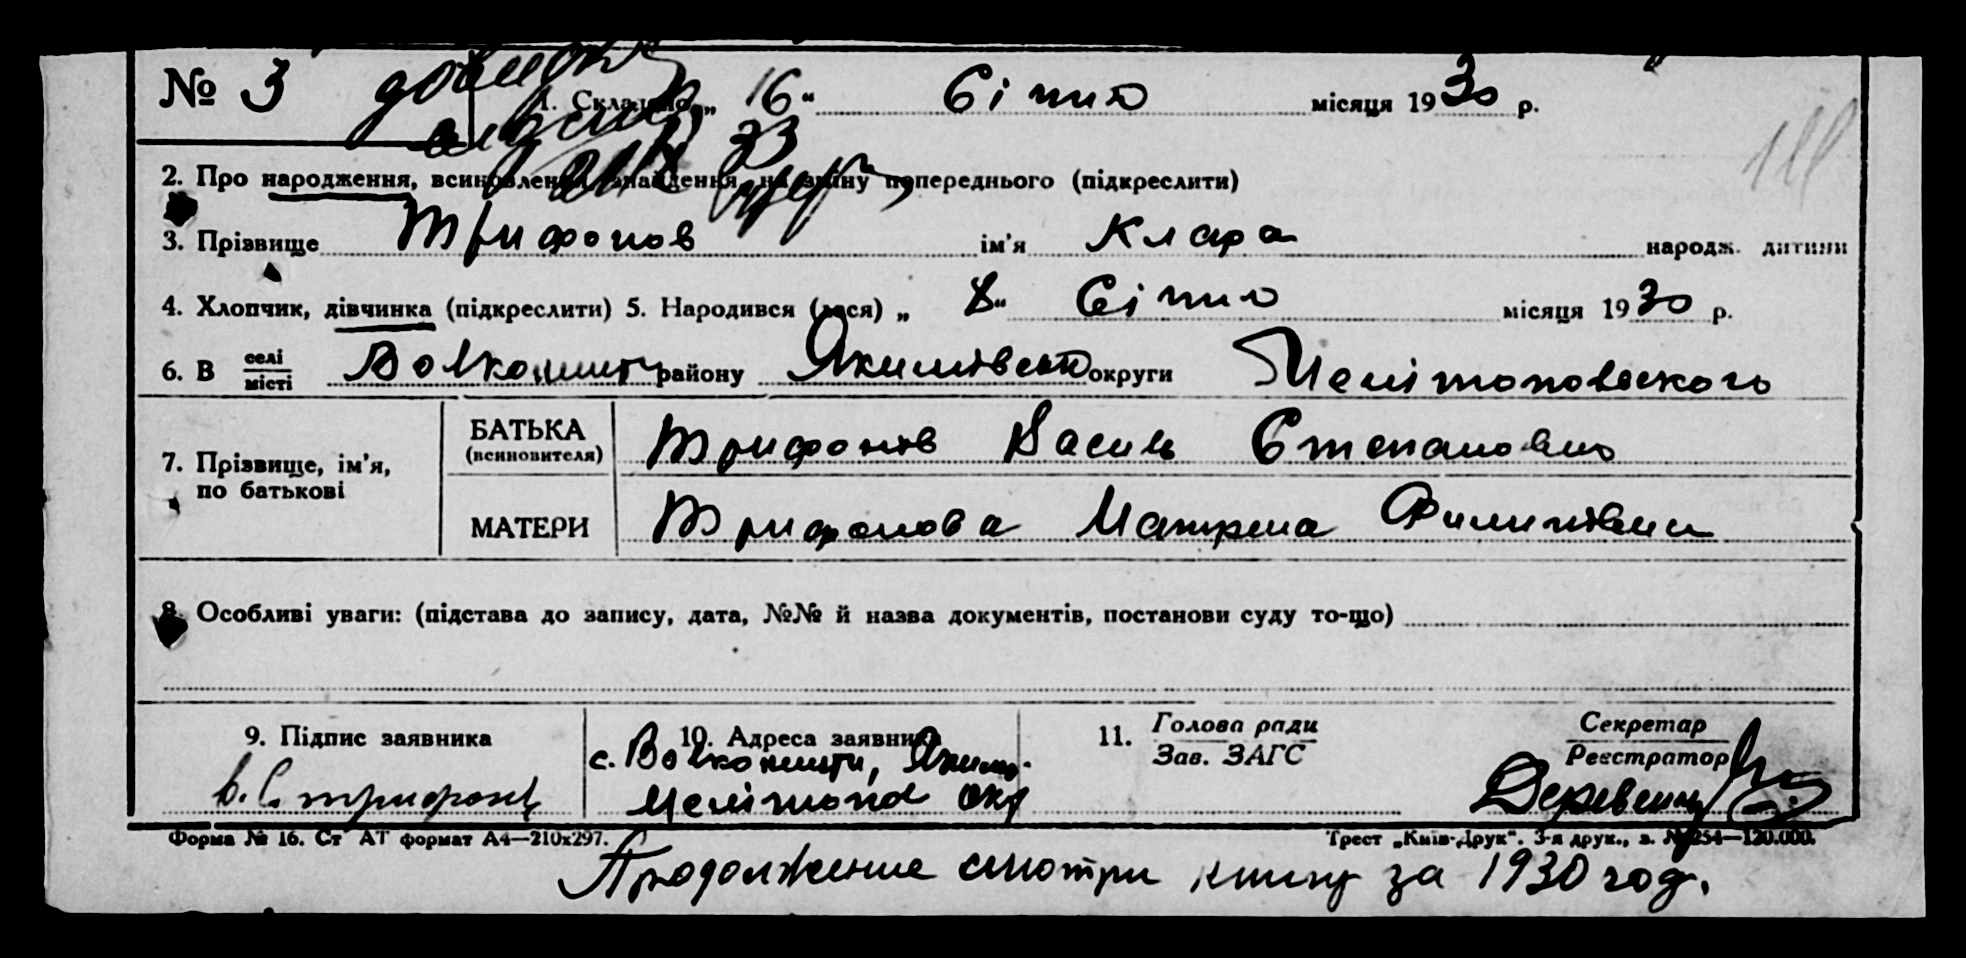 № 3 1. Складено „ 16 “ Січня місяця 1930 р.
2. Про народження, всиновлення, знайдення, на зміну попереднього (підкреслити)
3. Прізвище Трифонов ім'я Клара народж. дитини
4. Хлопчик, дівчинка (підкреслити) 5. Народився (лася) „ 8 “ Січня місяця 1930 р.
6. В селі
місті району Якимівського округи Мелітопольського
7. Прізвище, ім'я,
по батькові
БАТЬКА
(всиновителя)
Трифонов Василь Степанович
МАТЕРИ Трифонова Матрена Филипівна
8. Особливі уваги: (підстава до запису, дата, №№ й назва документів, постанови суду то-що)
9. Підпис заявника 10. Адреса заявника 11. Голова ради
Зав. ЗАГС
Секретар
Реєстратор
В. С. Трифонов с. Яким.
Мелітопол окр
Форма № 16. Ст АТ формат А4—210х297. Трест „Київ-Друк“. 3-я друк., з. № 254—120.000.
Продолжение смотри книгу за 1930 год.